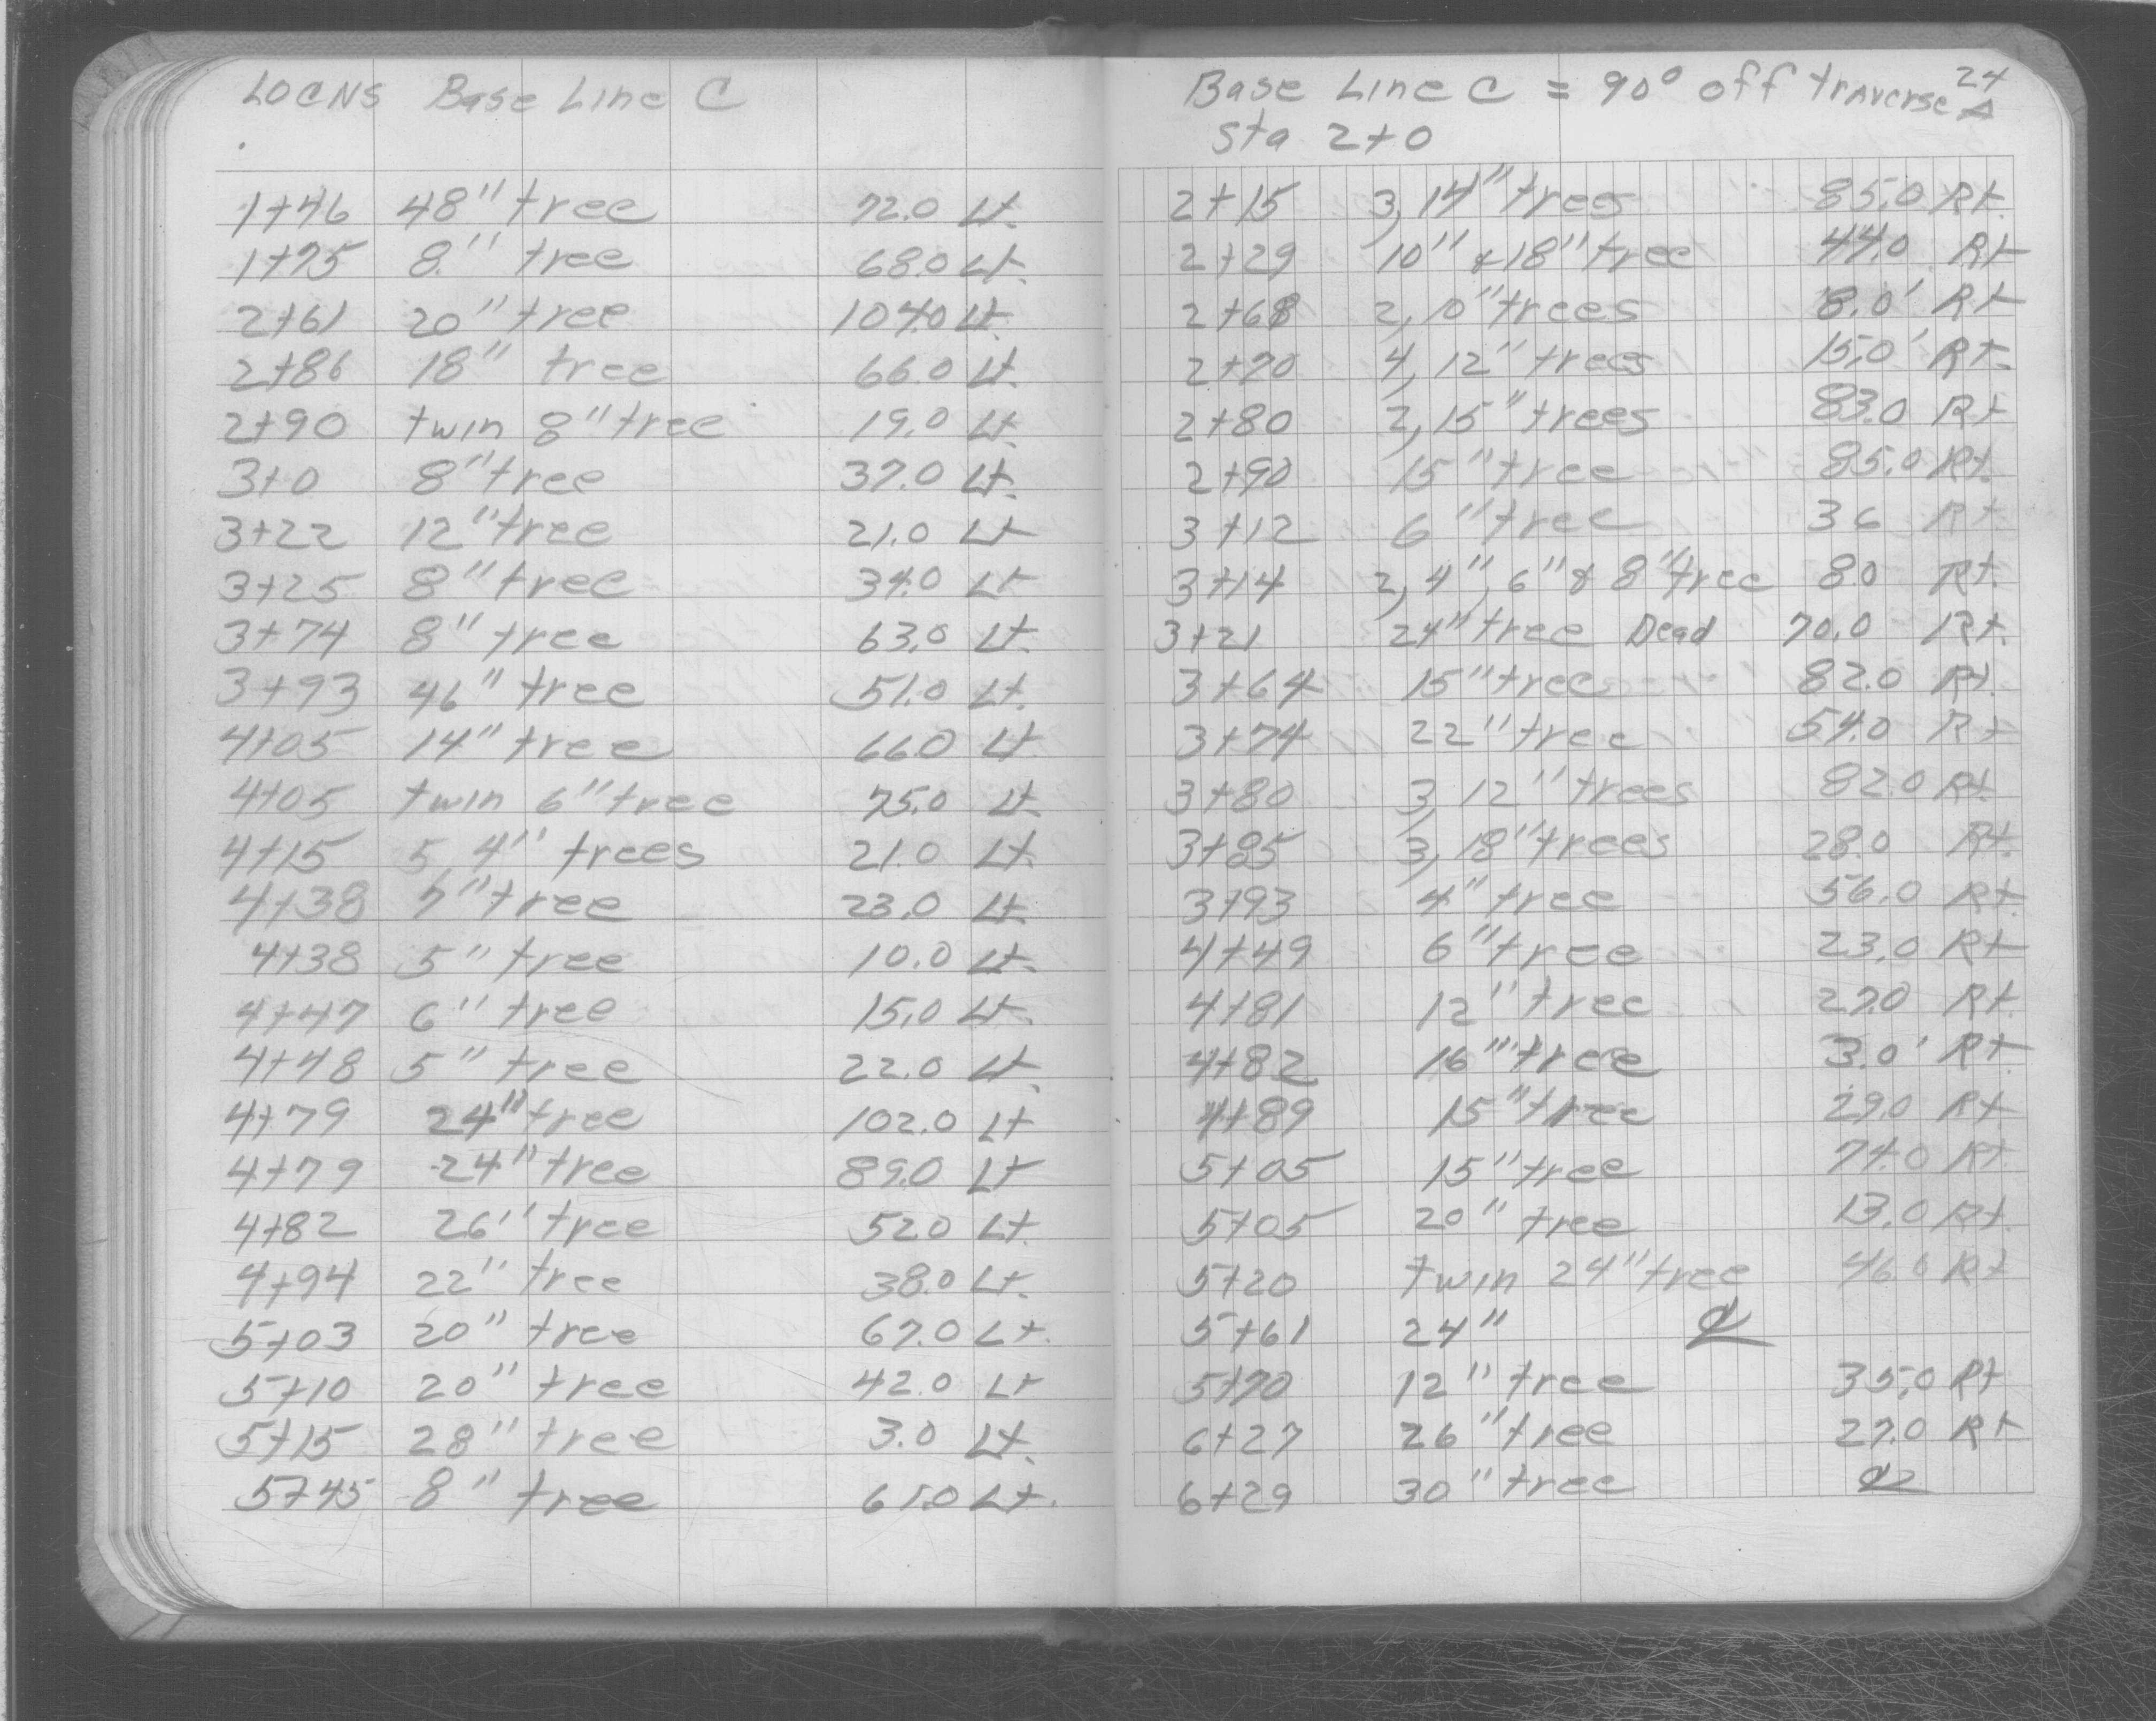 LOCNS Base Line C
1+46 48" tree 72.0 Lt.
1+75 8" tree 68.0 Lt.
2+61 20" tree 104.0 Lt.
2+86 18" tree 66.0 Lt.
2+90 twin 8" tree 19.0 Lt.
3+0 8" tree 37.0 Lt.
3+22 12" tree 21.0 Lt
3+25 8" tree 34.0 Lt
3+74 8" tree 63.0 Lt.
3+93 46" tree 51.0 Lt.
4+05 14" tree 66.0 Lt.
4+05 twin 6" tree 75.0 Lt.
4+15 5, 4" trees 21.0 Lt.
4+38 7" tree 23.0 Lt.
4+38 5" tree 10.0 Lt.
4+47 6" tree 15.0 Lt.
4+48 5" tree 22.0 Lt.
4+79 24" tree 102.0 Lt
4+79 24" tree 89.0 Lt
4+82 26" tree 52.0 Lt.
4+94 22" tree 38.0 Lt.
5+03 20" tree 67.0 Lt.
5+10 20" tree 42.0 Lt
5+15 28" tree 3.0 Lt.
5+45 8" tree 61.0 Lt.
24
Base Line C = 90° off traverse A
Sta 2+0
2+15 3, 14" trees 85.0 Rt.
2+29 10" & 18" tree 44.0 Rt
2+68 2, 10" trees 8.0' Rt
2+70 4, 12" trees 15.0' Rt.
2+80 2, 15" trees 83.0 Rt
2+90 15" tree 85.0 Rt.
3+12 6" tree 36 Rt
3+14 2, 4", 6" & 8" tree 80 Rt.
3+21 24" tree Dead 70.0 Rt.
3+64 15" tree 82.0 Rt.
3+74 22" tree 54.0 Rt
3+80 3, 12" trees 82.0 Rt.
3+85 3, 18" trees 28.0 Rt.
3+93 4" tree 56.0 Rt.
4+49 6" tree 23.0 Rt
4+81 12" tree 27.0 Rt.
4+82 16" tree 3.0' Rt
4+89 15" tree 29.0 Rt.
5+05 15" tree 74.0 Rt.
5+05 20" tree 13.0 Rt.
5+20 twin 24" tree 46.0 Rt
5+61 24" ℄
5+70 12" tree 35.0 Rt
6+27 26" tree 27.0 Rt
6+29 30" tree ℄